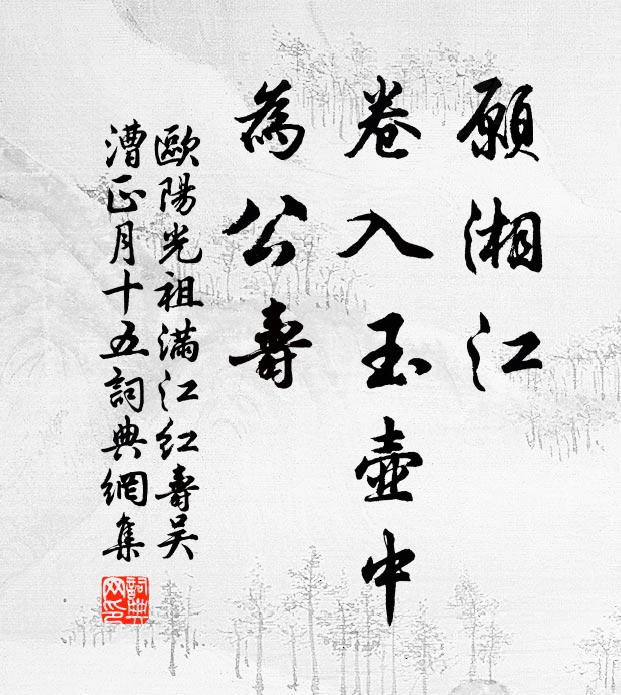 願湘江
卷入玉壺中
為公壽
歐陽光祖滿江紅壽吴
漕正月十五詞典網集
詞典網印